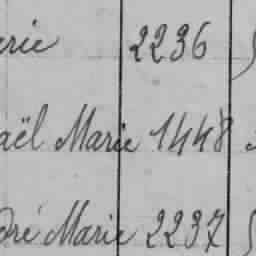 erie 2236
aël Marie 1448
dré Marie 2237